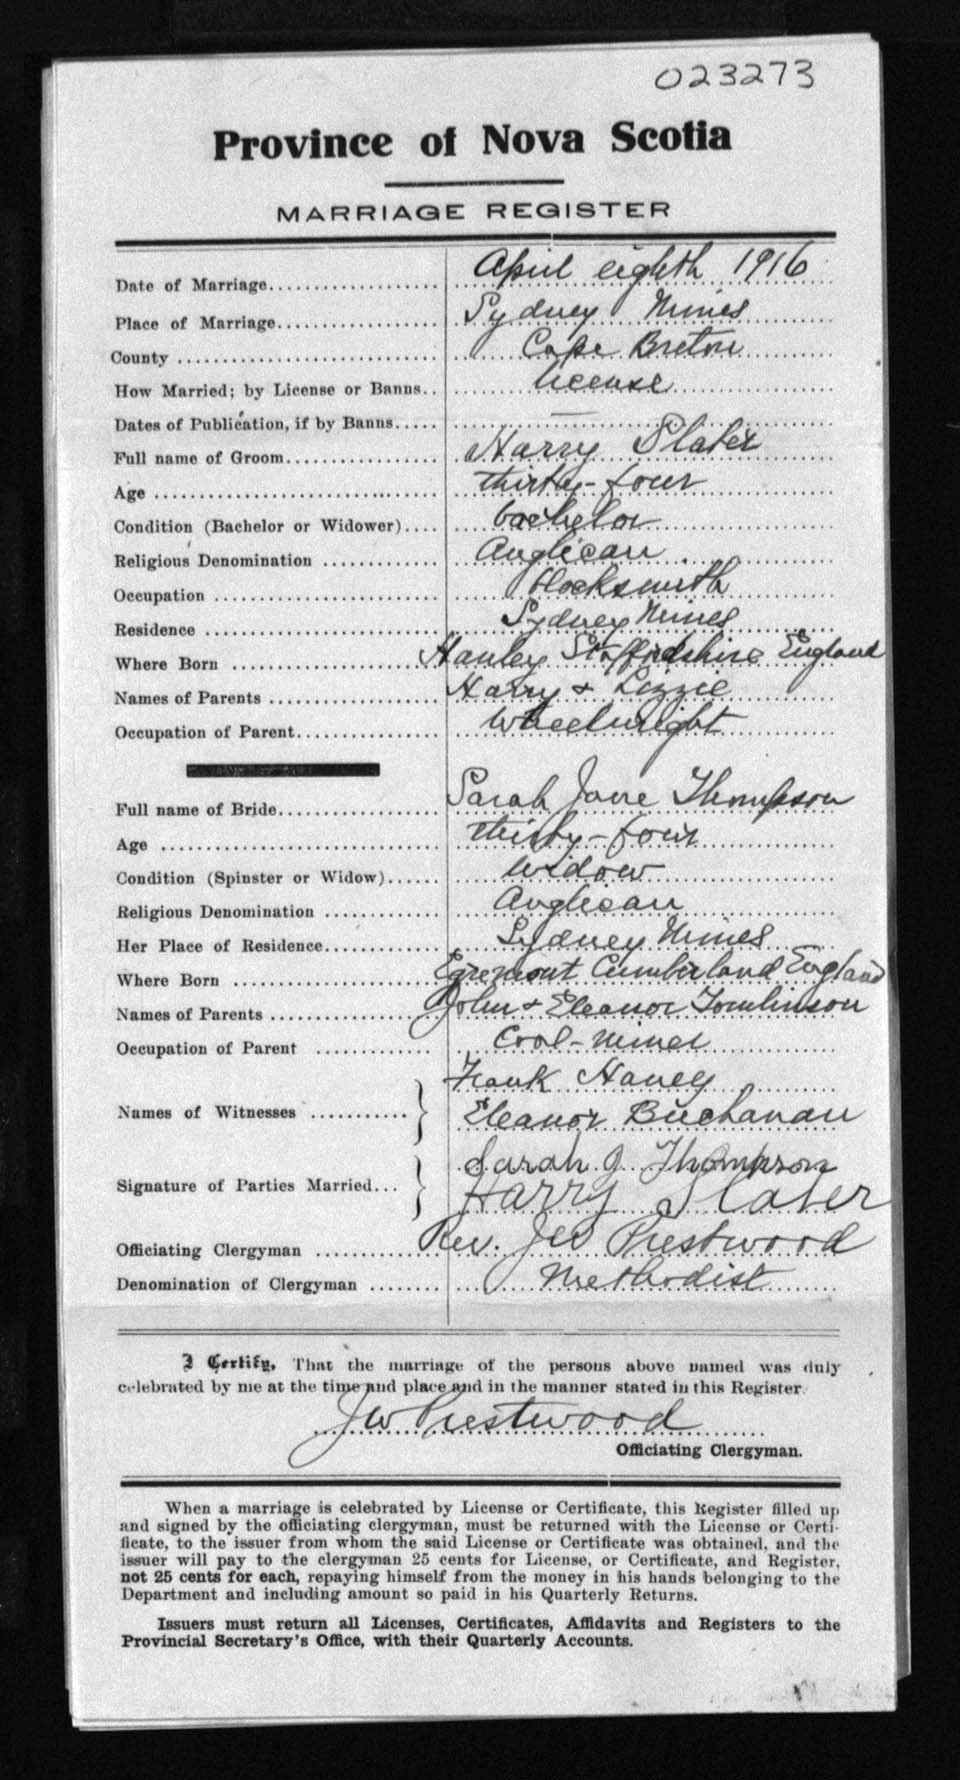 023273
Province of Nova Scotia
MARRIAGE REGISTER
Date of Marriage.................... April eighth 1916
Place of Marriage................... Sydney Mines
County .............................. Cape Breton
How Married; by License or Banns.. license
Dates of Publication, if by Banns..... —
Full name of Groom.................. Harry Slater
Age ................................. thirty-four
Condition (Bachelor or Widower).... bachelor
Religious Denomination ............. Anglican
Occupation .......................... blocksmith
Residence ........................... Sydney Mines
Where Born ........................ Hanley Staffordshire England
Names of Parents .................... Harry & Lizzie
Occupation of Parent................. Wheelwright
Full name of Bride................... Sarah Jane Thompson
Age ................................. thirty-four
Condition (Spinster or Widow)...... widow
Religious Denomination ............. Anglican
Her Place of Residence.............. Sydney Mines
Where Born ........................ Egremont Cumberland England
Names of Parents .................... John & Eleanor Tomlinson
Occupation of Parent .............. Coal-miner
Frank Haney
Names of Witnesses ...........} Eleanor Buchanan
Sarah J Thompson
Signature of Parties Married...} Harry Slater
Officiating Clergyman .............. Rev. JW Prestwood
Denomination of Clergyman ........ Methodist
I Certify, That the marriage of the persons above named was duly
celebrated by me at the time and place and in the manner stated in this Register.
JW Prestwood
Officiating Clergyman.
When a marriage is celebrated by License or Certificate, this Register filled up
and signed by the officiating clergyman, must be returned with the License or Certi-
ficate, to the issuer from whom the said License or Certificate was obtained, and the
issuer will pay to the clergyman 25 cents for License, or Certificate, and Register,
not 25 cents for each, repaying himself from the money in his hands belonging to the
Department and including amount so paid in his Quarterly Returns.
Issuers must return all Licenses, Certificates, Affidavits and Registers to the
Provincial Secretary's Office, with their Quarterly Accounts.